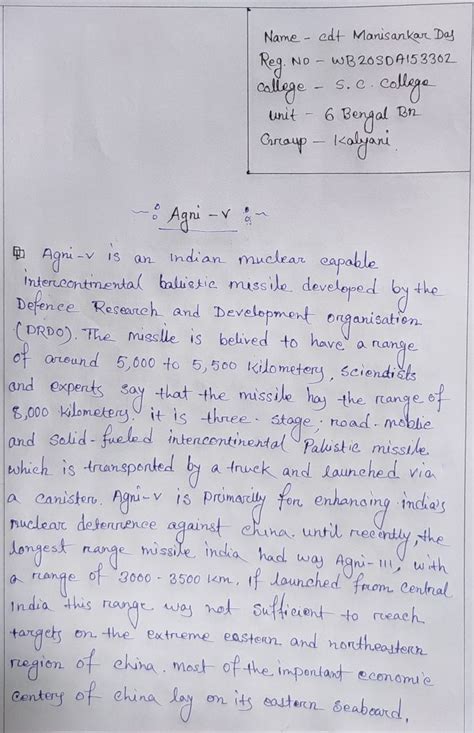 Name - cdt Manisankar Das
Reg. No - WB20SDA153302
college - S. C. College
unit - 6 Bengal Bn
Group - Kalyani
Agni - v
Agni-v is an indian nuclear capable
intercontinental ballistic missile developed by the
Defence Research and Development organisation
(DRDO). The missile is belived to have a range
of around 5,000 to 5,500 kilometers, scientists
and experts say that the missile has the range of
8,000 kilometers. it is three-stage, road-moblie
and solid-fueled intercontinental Palistic missile
which is transported by a truck and launched via
a canisters. Agni-v is primarily for enhancing india's
nuclear deterrence against china. until recently, the
longest range missile india had was Agni-III, with
a range of 3000-3500 km, if launched from central
India this range was not sufficient to reach
targets on the extreme eastern and northeastern
region of china. most of the important economic
centers of china lay on its eastern seaboard,